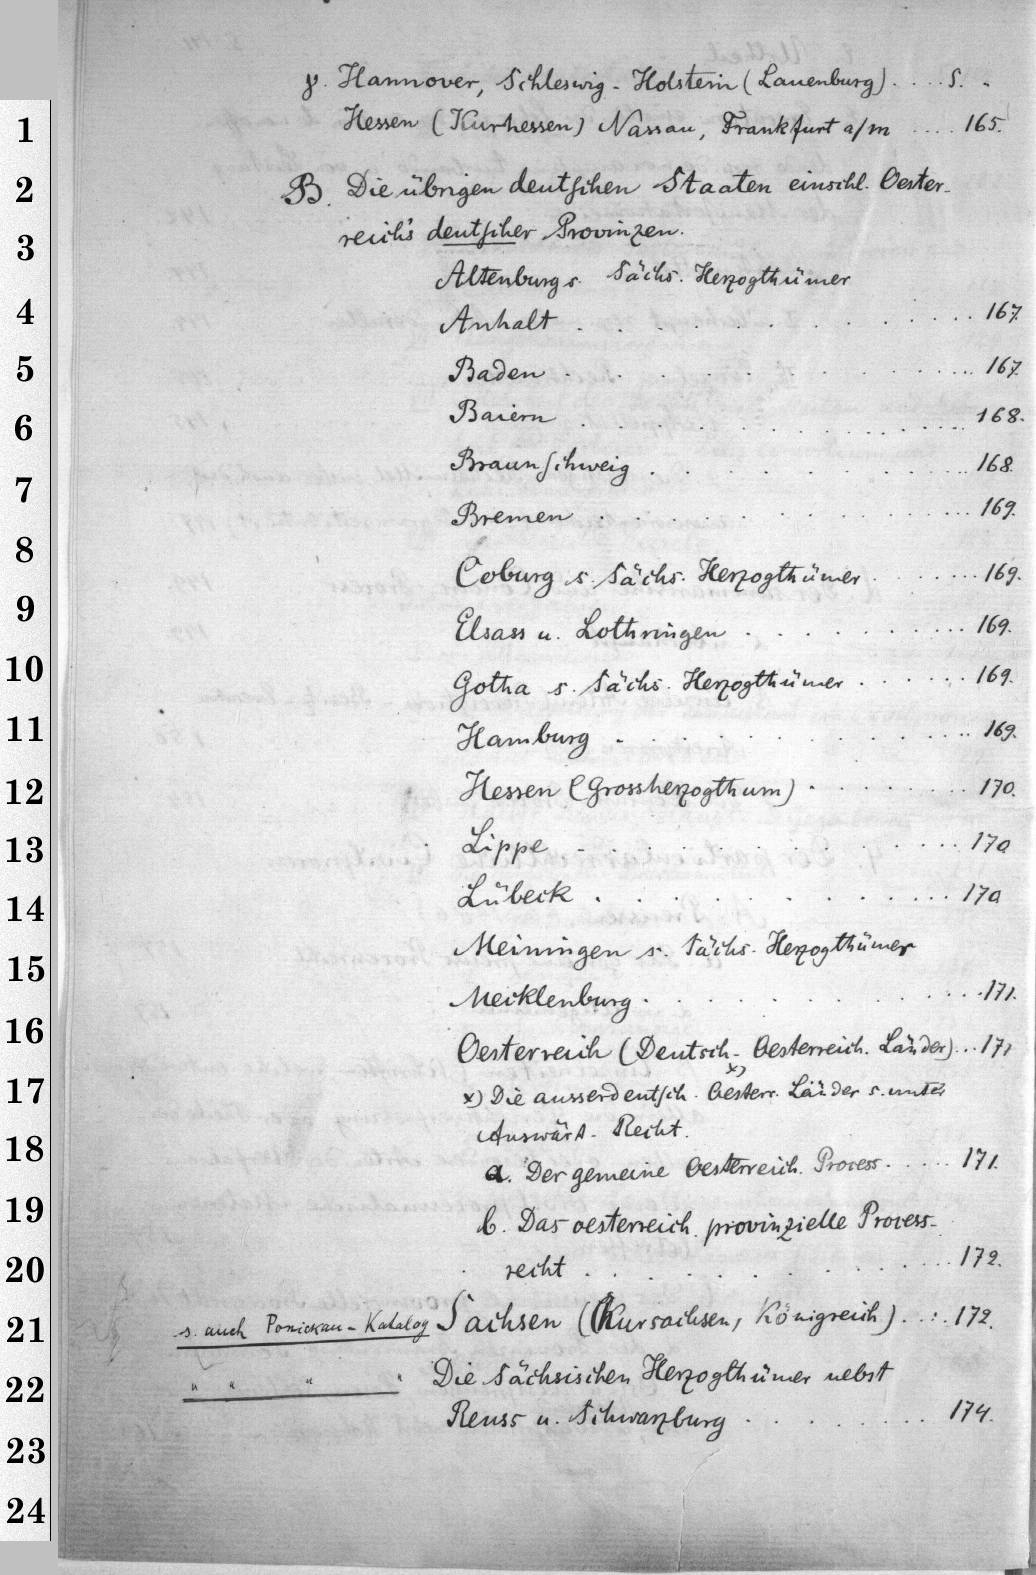 γ. Hannover, Schleswig-Holstein (Lauenburg) . . . . S. „
1 Hessen (Kurhessen) Nassau, Frankfurt a/m . . . . 165.
2 B. Die übrigen deutschen Staaten einschl. Oester-
3 reich's deutscher Provinzen.
Altenburg s. Sächs. Herzogthümer
4 Anhalt . . . . . . . . . . 167.
5 Baden . . . . . . . . . . 167.
6 Baiern . . . . . . . . . . 168.
7 Braunschweig . . . . . . . . . . 168.
8 Bremen . . . . . . . . . . 169.
Coburg s. Sächs. Herzogthümer . . . . . . 169.
9 Elsass u. Lothringen . . . . . . . . 169.
10 Gotha s. Sächs. Herzogthümer . . . . . . 169.
11 Hamburg . . . . . . . . . . 169.
12 Hessen (Grossherzogthum) . . . . . . . . 170.
13 Lippe . . . . . . . . . . 170
14 Lübeck . . . . . . . . . . 170
15 Meiningen s. Sächs. Herzogthümer
Mecklenburg . . . . . . . . . . 171.
16 Oesterreich (Deutsch-Oesterreich. Länder) . . . 171
x)
17 x) Die ausserdeutsch. Oesterr. Länder s. unter
18 Auswärt. Recht.
a. Der gemeine Oesterreich. Process . . . . . 171.
19 b. Das oesterreich. provinzielle Process-
20 recht . . . . . . . . . . 172.
21 s. auch Ponickau-Katalog Sachsen (Kursachsen, Königreich) . . : . 172.
22 " " " " Die Sächsischen Herzogthümer nebst
Reuss u. Schwarzburg . . . . . . . . 174.
23
24